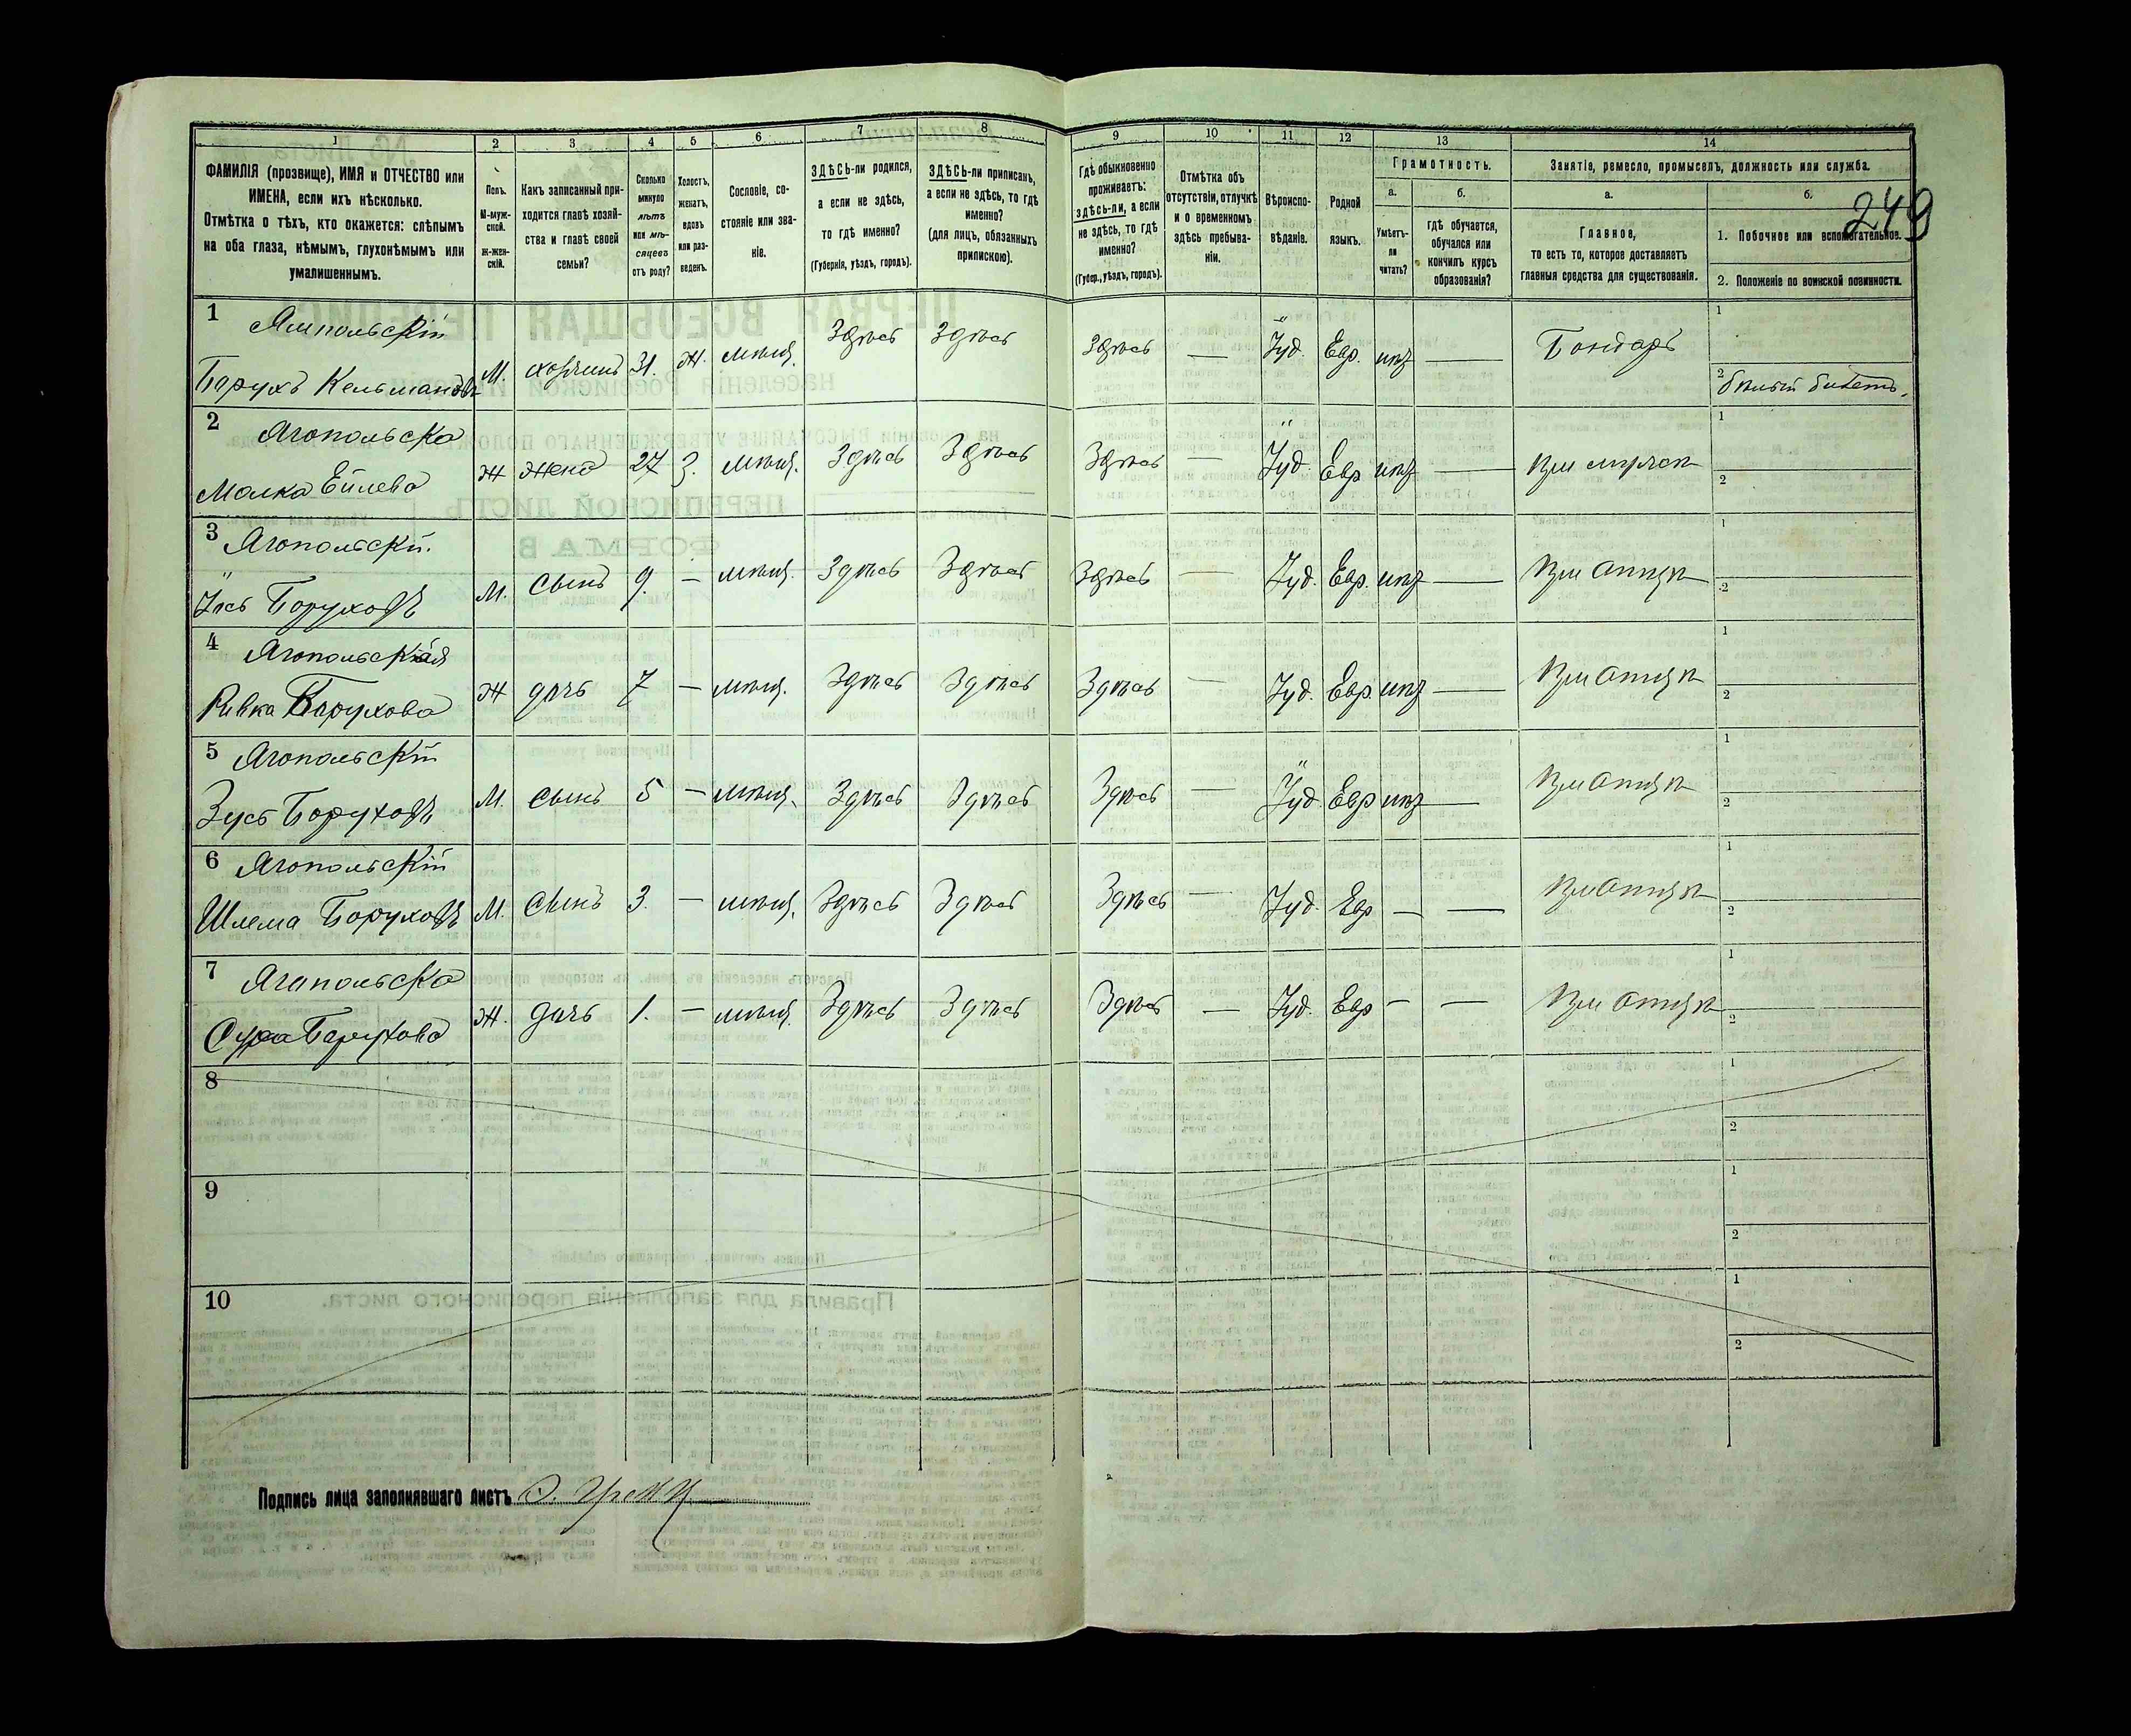 1 2 3 4 5 6 7 8 9 10 11 12 13 14
ФАМИЛІЯ (прозвище), ИМЯ и ОТЧЕСТВО или
ИМЕНА, если ихъ нѣсколько.
Отмѣтка о тѣхъ, кто окажется: слѣпымъ
на оба глаза, нѣмымъ, глухонѣмымъ или
умалишеннымъ.
Полъ.
М-муж-
ской.
ж-жен-
скій.
Какъ записанный при-
ходится главѣ хозяй-
ства и главѣ своей
семьи?
Сколько
минуло
лѣтъ
или мѣ-
сяцевъ
отъ роду?
Холостъ,
женатъ,
вдовъ
или раз-
веденъ.
Сословіе, со-
стояніе или зва-
ніе.
ЗДѢСЬ-ли родился,
а если не здѣсь,
то гдѣ именно?
(Губернія, уѣздъ, городъ).
ЗДѢСЬ-ли приписанъ,
а если не здѣсь, то гдѣ
именно?
(для лицъ, обязанныхъ
припискою).
Гдѣ обыкновенно
проживаетъ:
здѣсь-ли, а если
не здѣсь, то гдѣ
именно?
(Губер., уѣздъ, городъ).
Отмѣтка объ
отсутствіи, отлучкѣ
и о временномъ
здѣсь пребыва-
ніи.
Вѣроиспо-
вѣданіе.
Родной
языкъ.
Грамотность.
а. б.
Умѣетъ-
ли
читать?
гдѣ обучается,
обучался или
кончилъ курсъ
образованія?
Занятія, ремесло, промыселъ, должность или служба.
а. б.
Главное,
то есть то, которое доставляетъ
главныя средства для существованія.
249
1. Побочное или вспомогательное.
2. Положеніе по воинской повинности.
1 Ямпольскій
Барухъ Кельмановъ М. хозяинъ 31. Ж. мѣщ. Здѣсь Здѣсь Здѣсь — Іуд. Евр. нѣт — Бондарь 1
2 бѣлый билетъ.
2 Ягопольска
Малка Ейлева Ж жена 27 З. мѣщ. Здѣсь Здѣсь Здѣсь — Іуд. Евр нѣт — при мужѣ 1
2
3 Ягопольскій.
Іось Боруховъ М. Сынъ 9. — мѣщ. Здѣсь Здѣсь Здѣсь — Іуд. Евр. нѣт — При Отцѣ 1
2
4 Ягопольская
Ривка Барухова Ж дочь 7 — мѣщ. Здѣсь Здѣсь Здѣсь — Іуд. Евр. нѣт — При Отцѣ 1
2
5 Ягопольскій
Зусь Боруховъ М. Сынъ 5 — мѣщ. Здѣсь Здѣсь Здѣсь — Іуд. Евр нѣт — При Отцѣ 1
2
6 Ягопольскій
Шлема Боруховъ М. Сынъ 3. — мѣщ. Здѣсь Здѣсь Здѣсь — Іуд. Евр — — При Отцѣ 1
2
7 Ягапольска
Сура Барухова Ж. дочь 1. — мѣщ. Здѣсь Здѣсь Здѣсь — Іуд. Евр — — При Отцѣ 1
2
8 1
2
9 1
2
10 1
2
Подпись лица заполнявшаго листъ